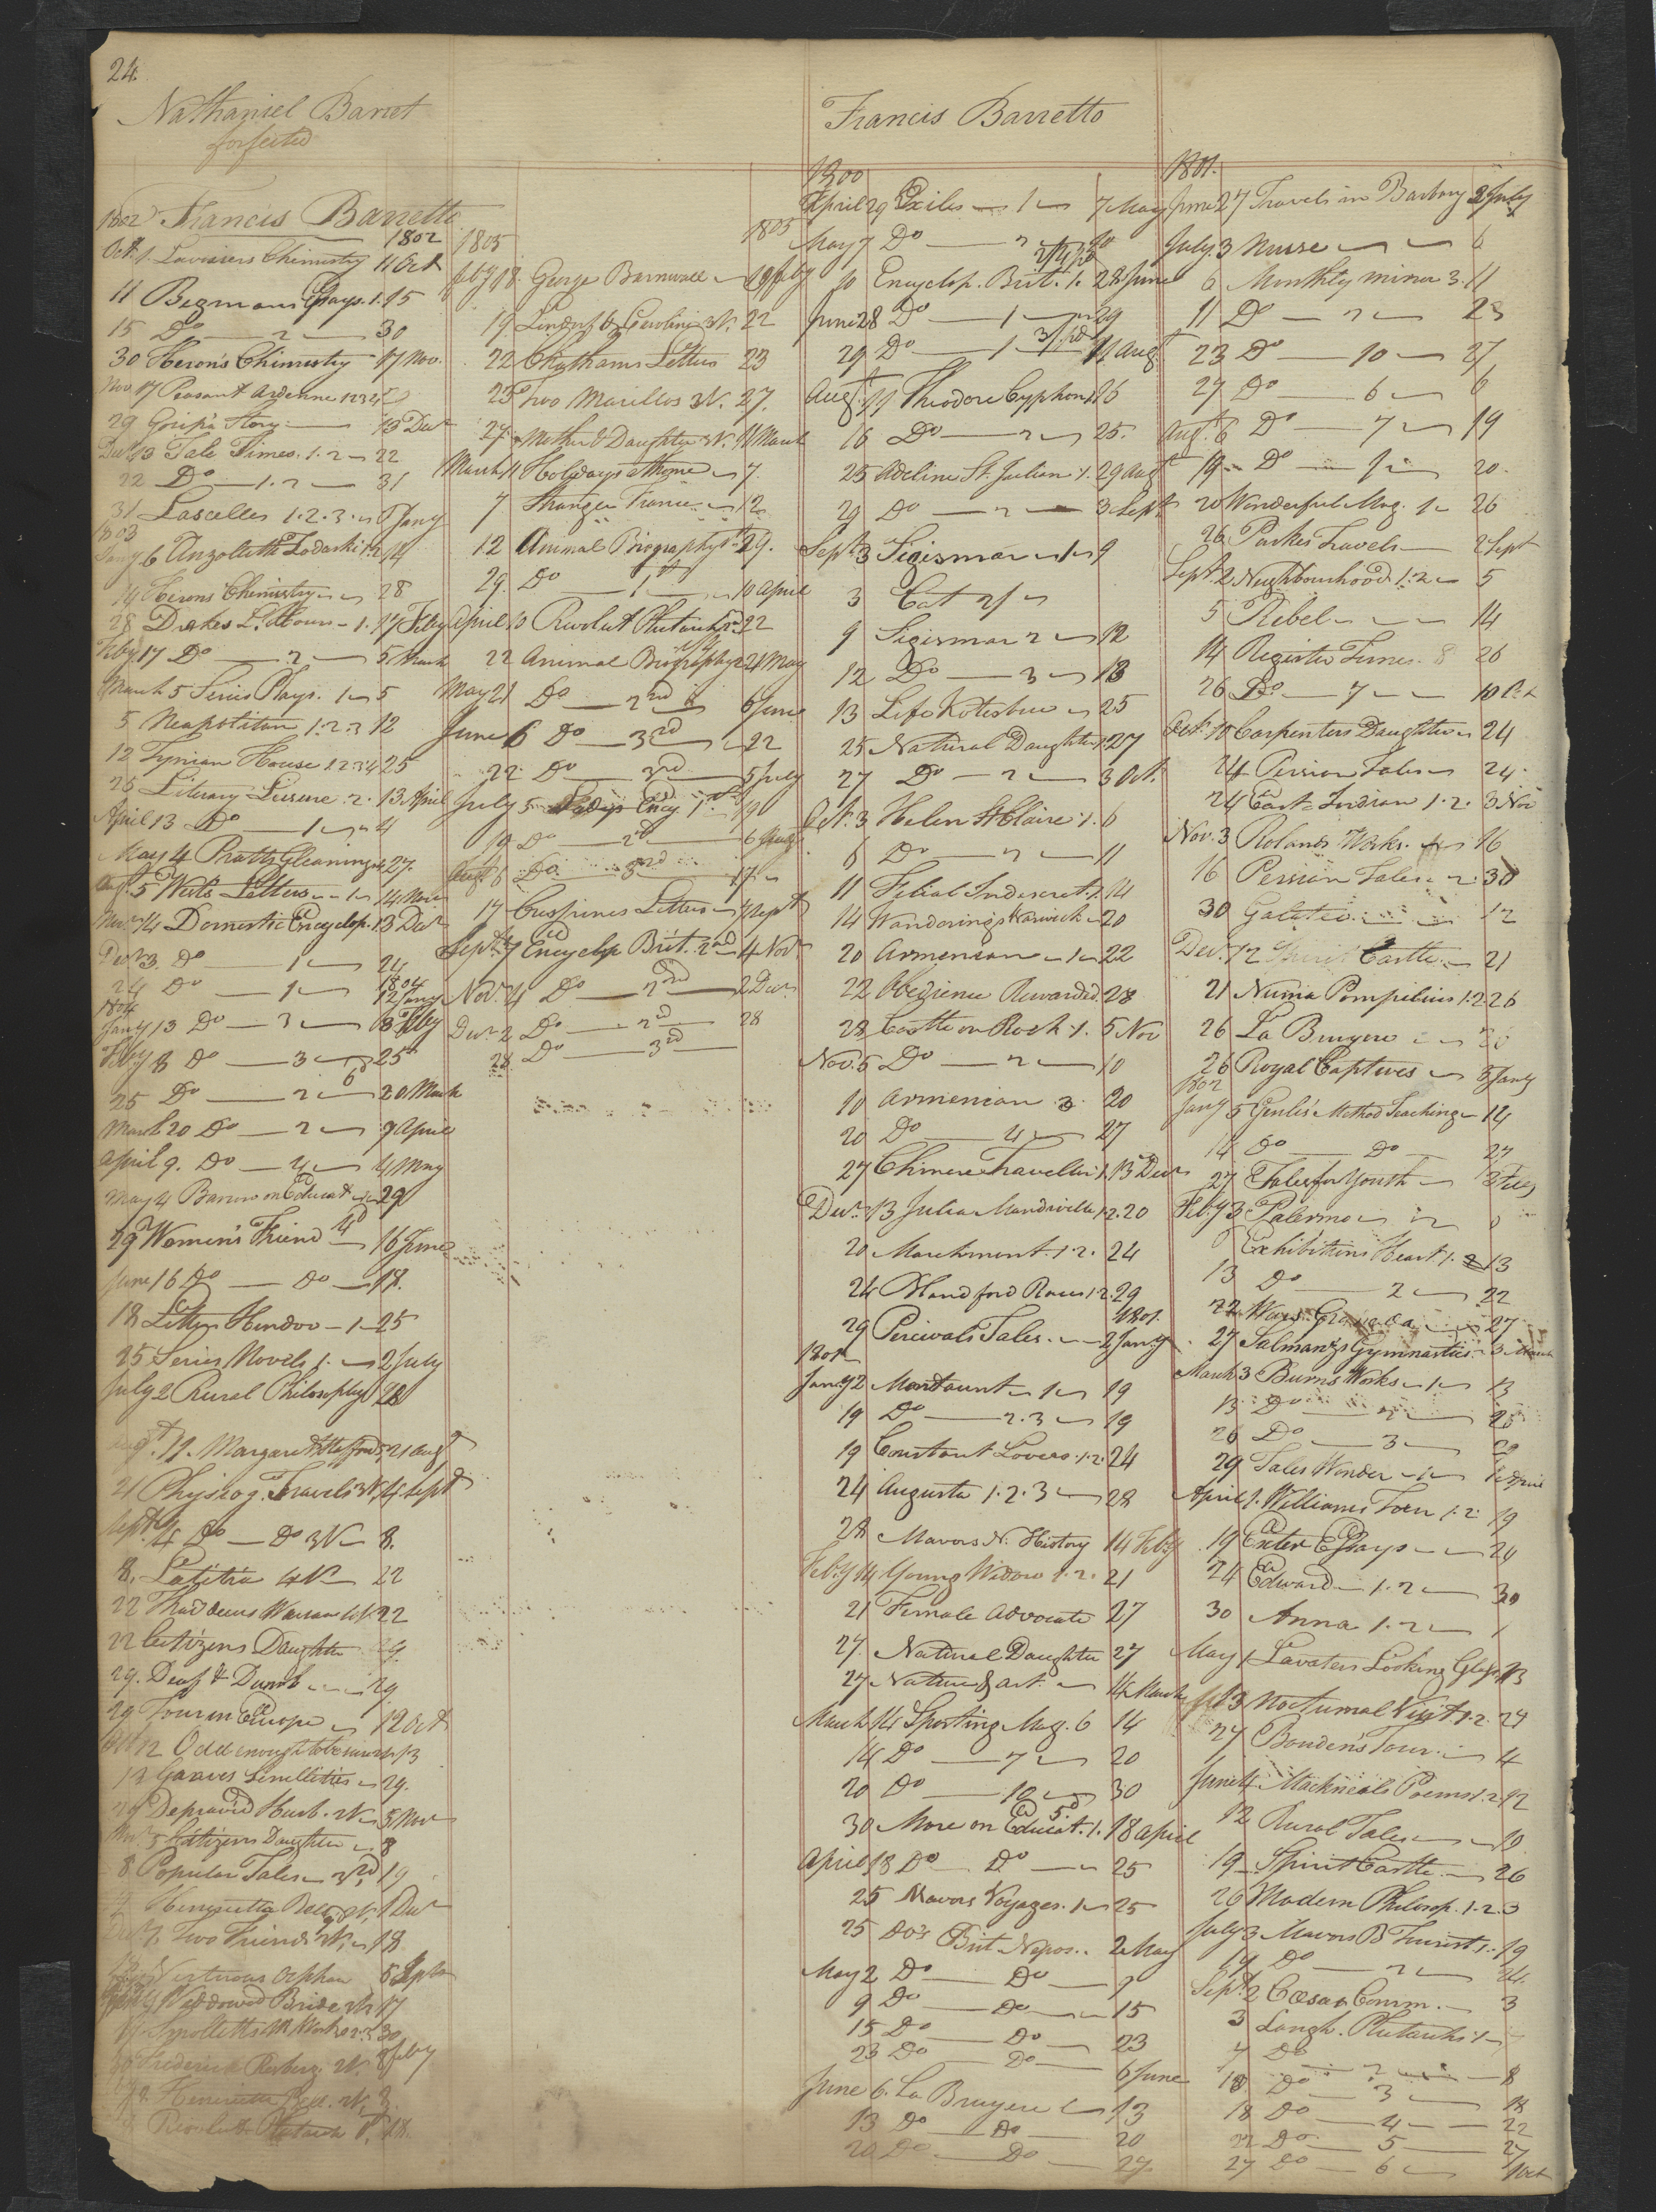 24.
Nathaniel Barret
forfeited
Francis Barretto
1802 Francis Barretto
1802
Octr. 1. Lavoisiers Chemistry 11 Oct
11 Begmans Essays. 1. 15
15 Do — 2 — 30
30 Herons Chimestry 17 Nov.
Nov. 17 Peasant Ardenne 1234
29 Gosips Story — 13 Decr
Decr 13 Tale Times. 1. 2 — 22
22 Do — 1. 2 — 31
31 Lascelles 1. 2. 3. — 6 Jany
1803
Jany 6 Anzoletta Zadoski 1.2 14
14 Herons Chimistry — 28
28 Drakes L. Hours — 1. 17 Feby
Feby 17 Do — 2 — 5 March
March 5 Series Plays. 1 — 5
5 Neapolitan 1. 2. 3 12
12 Tynian House 1 2 3 4 25
25 Literary Leisure. 2. 13 April
April 13 Do — 1 — 4
May 4 Pratts Gleanings 27.
5 Werts Letters — 1 — 14 Nov
Novr 14 Domestic Encyclop. 1. 3 Decr
Decr 3. Do — 1 — 24
24 Do — 1 — 1804 12 Jany
1804
Jany 13 Do — 3 — 8 Feby
Feby 8 Do — 3 — 25
25 Do — 2 — 20 March
March 20 Do — 2 — 9 April
April 9. Do — 4 — 4 May
May 4 Barrow on Educat — 29
29 Women's Friend — 16 June
June 16 Do — Do — 18.
18 Letters Hindoo — 1 — 25
25 Series Novels 1. — 2 July
July 2 Rural Philosophy 28
Augt. 11. Margaret 21 Augt
21 Physiog. Travels 3V. 4 Sept
Sept 4 Do — Do 3V — 8.
8. Latitia 4V — 22
22 Thaddeus Warsaw 4V. 22
22 Citizens Daughter 29.
29. Deaf & Dumb — 29
29 Tour in Europe — 12 Oct
12 Odd enough to be sure 13
13 Graves — 29.
29 Depraved Husb. 2V — 5 Nov
Novr 5 Citizens Daughter — 8
8 Popular Tales — 3rd, 19
Henrietta Bell. 2V, 1 Decr
Two Friends 2V, — 18
Virtuous Orphan
Widdowed Bride 2V 17
17 Smolletts M Works 2.3 30
Frederick 2V. Feby
Henrietta Bell. 2V, 3.
Revolut. Plutarch 1st, 18.
1805 1805
Feby 18. George Barnwall — 19 Feby
19 3V. 22
22 Chathams Letters 23
23 Two Marillos 3V. 27.
27. Mother & Daughter 3V. 11 March
March 11 Holydays at home — 7.
7 Stranger France — 12
12 Animal Biography 1st 29.
29. Do — 1st — 10 April
April 10 Revolut Plutarch 2nd 22
22 Animal Biography 2 21 May
May 21 Do — 2nd — 6 June
June 6 Do — 3rd — 22
22 Do — 3rd — 5 July
July 5 Ency. 1st 19
19 Do — 2d — 6 Augt
Augt 6 Do — 3rd — 17
17 Crispines Letters — 4 Sept
Sept. 4 Encyclop. Brit. 2nd — 4 Novr
Novr. 4 Do — 2nd — 2 Decr.
Decr 2 Do — 2d — 28
28 Do — 3rd —
1800
April 29 Exiles — 1 — 7 May
May 7 Do — 2 — 10
10 Encyclop. Brit. 1. 28 June
June 28 Do — 1 — 29
29 Do — 1 — 11 Augt
Augt. 11 Theodore Cyphon 1. 16
16 Do — 2 — 25.
25 Adeline St. Julian 1. 29 Augt
29 Do — 2 — 3 Sept
Sept. 3 Sigismar — 1 — 9
3 Cat 2/ —
9 Sigismar 2 — 12
12 Do — 3 — 13
13 Life Kotzebue — 25
25 Natural Daughter 1. 27
27 Do — 2 — 3 Oct.
Oct. 3 Helen St Claire 1. 6
6 Do — 2 — 11
11 Filial Indiscret. 1. 14
14 Wanderings Warwick — 20
20 Armenian — 1 — 22
22 Obedience Rewarded. 28
28 Castle on Rock. 1. 5 Nov
Nov. 5 Do — 2 — 10
10 Armenian 3. 20
20 Do — 4 — 27
27 Chinese Traveller 1. 13 Decr
Decr. 13 Julia Mandiville 1. 2. 20
20 Marchment. 1. 2. 24
24 Blandford Races 1.2. 29
29 Percivals Tales. — 1801. 2 Jany
1801
Jany 2 Mordaunt — 1 — 19
19 Do — 2. 3 — 19
19 Constant Lovers. 1. 2. 24
24 Augusta 1. 2. 3 — 28
28 Mavors N. History 14 Feby
Feby 14 Young Widow 1. 2. 21
21 Female Advocate 27
27. Natural Daughter 27
27 Nature & Art. — 14 March
March 14 Sporting Mag. 6 14
14 Do — 7 — 20
20 Do — 12 — 30
30 More on Educat. 1. 18 April
April 18 Do — Do — 25
25 Mavors Voyages. 1 — 25
25 Do's Brit Nepos. . 2 May
May 2 Do — Do — 9
9 Do — Do — 15
15 Do — Do — 23
23 Do — Do — 6 June
June 6. La Bruyere — 13
13 Do — Do — 20
20 Do — Do — 27.
1801.
June 27 Travels in Barbary 2 July
July. 3 Nurse — — 6
6 Monthly Mirror 3. 11
11 Do — 2 — 23
23 Do — 10 — 27
27 Do — 6 — 6
Augt. 6 Do — 7 — 19
19 — Do — 1 — 20.
20 Wonderful Mag. 1 — 26
26 Parkes Travels — 2 Sept
Sept. 2 Neighbourhood 1. 2 — 5
5 Rebel — — — 14
14 Register Times. 8 26
26 Do — 7 — — 10 Oct
Oct. 10 Carpenters Daughter — 24
24 Persian Tales — 24.
24 East-Indian 1. 2. 3 Nov
Nov. 3 Rolands Works. — 16
16 Persian Tales. — 2. 30
30 Galatea — 12
Decr. 12 Spirit Castle. — 21
21 Numa Pompilius 1. 2. 26
26 La Bruyere — 26
26 Royal Captives — 5 Jany
1802
Jany 5 Genlis' Method Teaching — 14
14 Do — Do — 27
27 Tales for Youth — 3 Feby
Feby 3 Palermo —
Exhibitions Heart. 1. 2 13
13 Do — 2 — 22
22 Wars Granada — 27
27 Salmanzs Gymnastics — 3 March
March 3 Burns Works — 1 — 13
13 Do — 2 — 26
26 Do — 3 — 29
29 Tales Wonder — 1 — 1 April
April 1. Williams Tour 1. 2. 19
19 Exeter Essays — — 24
24 Edward — 1. 2 — 30
30 Anna 1. 2 — 1
May 1 Lavaters Looking Glass 13
13 Nocturnal Visit. 1. 2. 27
27 Boudens Tour. — 4
June 4 Mackneals Poems 1. 2. 12
12 Rural Tales — 19
19 — Spirit Castle — 26
26 Modern Philosop. 1. 2. 3
July 3 Mavors B Tourist 1. 19
19 Do — 2 — 24.
Sept. 2 Cæsars Comm. — 3
3 Langh. Plutarchs 1 — 7
7 Do — 2 — 8
10 Do — 3 — 18
18 Do — 4 — — 22
22 Do — 5 — 27
27 Do — 6 — 1 Oct